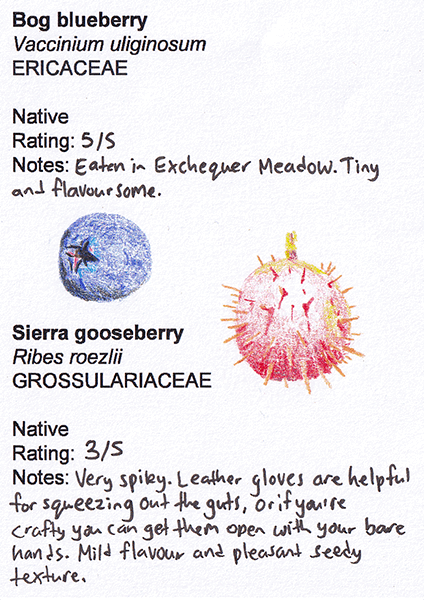 Bog blueberry
Vaccinium uliginosum
ERICACEAE
Native
Rating: 5/5
Notes: Eaten in Exchequer Meadow. Tiny
and flavoursome.
Sierra gooseberry
Ribes roezlii
GROSSULARIACEAE
Native
Rating: 3/5
Notes: Very spiky. Leather gloves are helpful
for squeezing out the guts, or if you're
crafty you can get them open with your bare
hands. Mild flavour and pleasant seedy
texture.